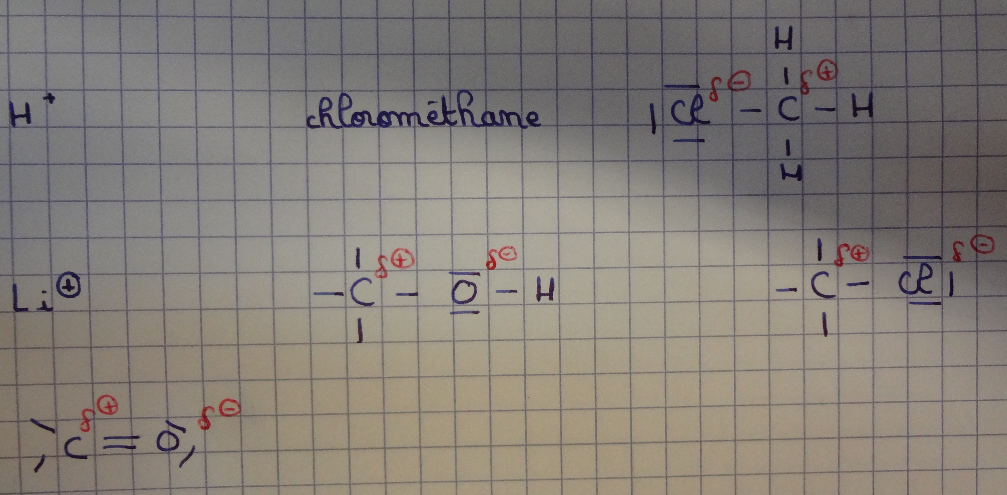 H
H⁺ chlorométhane |Cl δ⊖ – C δ⊕ – H
H
Li⊕ – C δ⊕ – O δ⊖ – H – C δ⊕ – Cl| δ⊖
C δ⊕ = O δ⊖